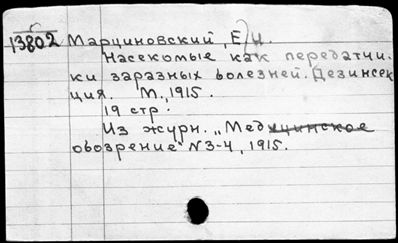 13802 Марциновский, Е. И.
Насекомые как передатчи-
ки заразных болезней. Дезинсек
ция. М., 1915.
19 стр.
Из журн. „Медицинское
обозрение" N3-4, 1915.